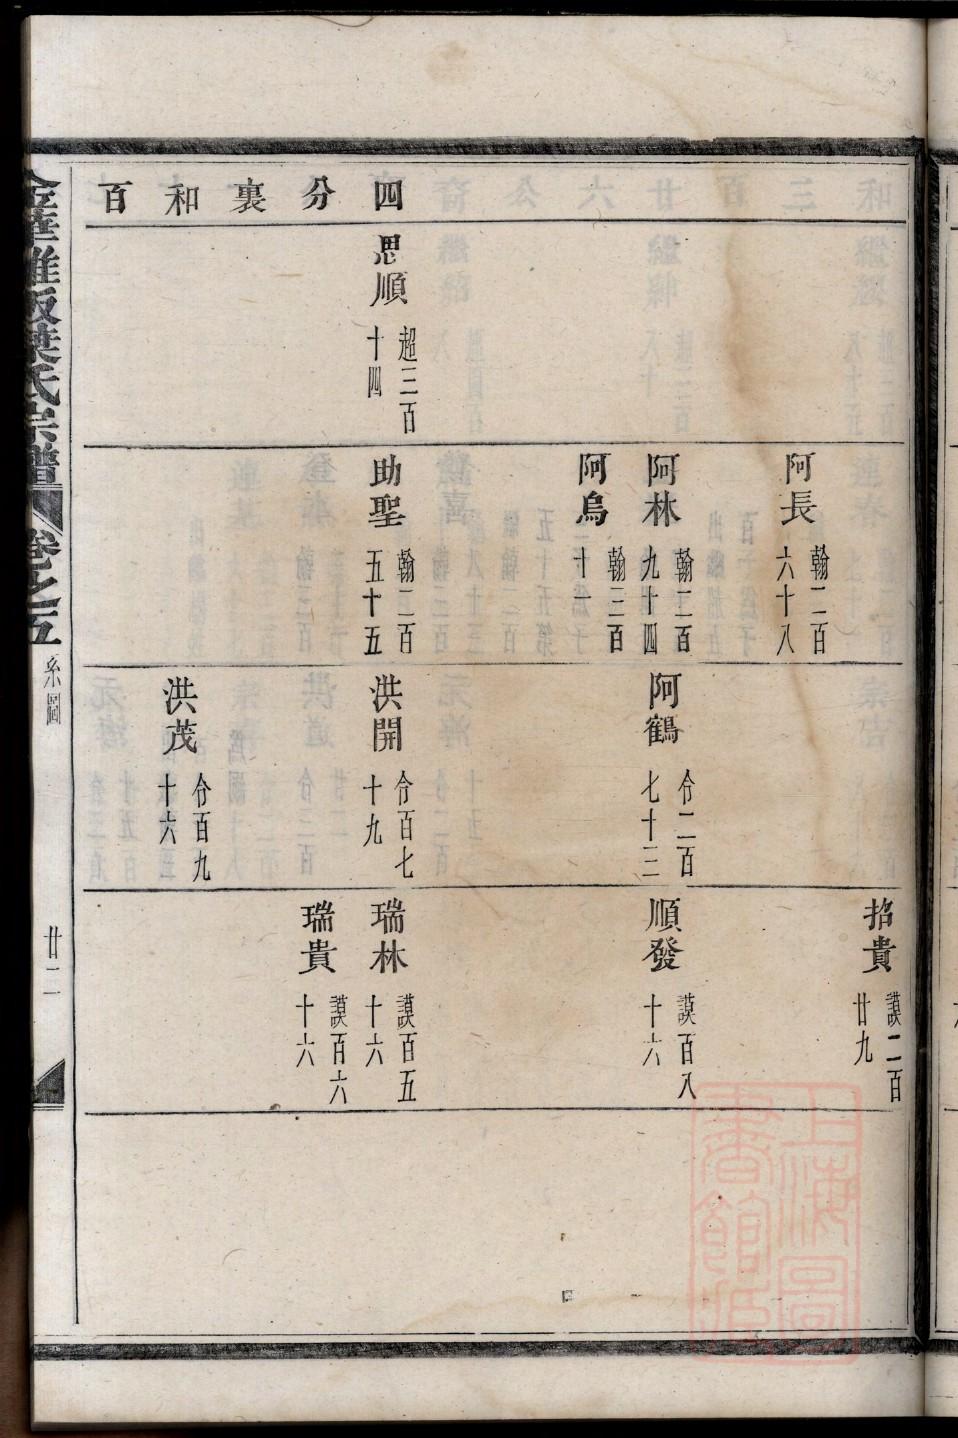 四分裏和百
思順 超三百十四
阿長 翰二百六十八
阿林 翰二百九十四
阿烏 翰三百十一
助聖 翰二百五十五
阿鶴 仝二百七十三
洪開 仝百七十九
洪茂 仝百九十六
招貴 謨二百廿九
順發 謨百八十六
瑞林 謨百五十六
瑞貴 謨百六十六
葉氏宗譜
卷之五
系圖
廿二
上海圖書館藏